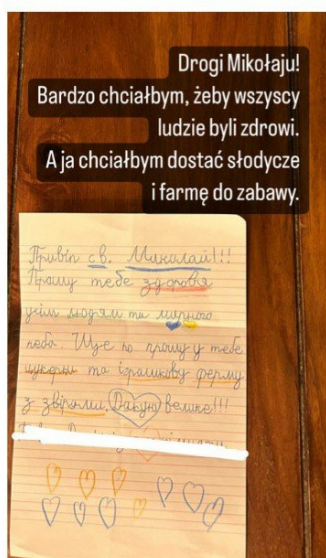 Drogi Mikołaju!
Bardzo chciałbym, żeby wszyscy
ludzie byli zdrowi.
A ja chciałbym dostać słodycze
i farmę do zabawy.
Привіт св. Миколай!!!
Прошу тебе здоровя
усім людям та мирного
неба. Ще по прошу у тебе
цукерки та іграшкову ферму
з звірами. Дякую велике!!!